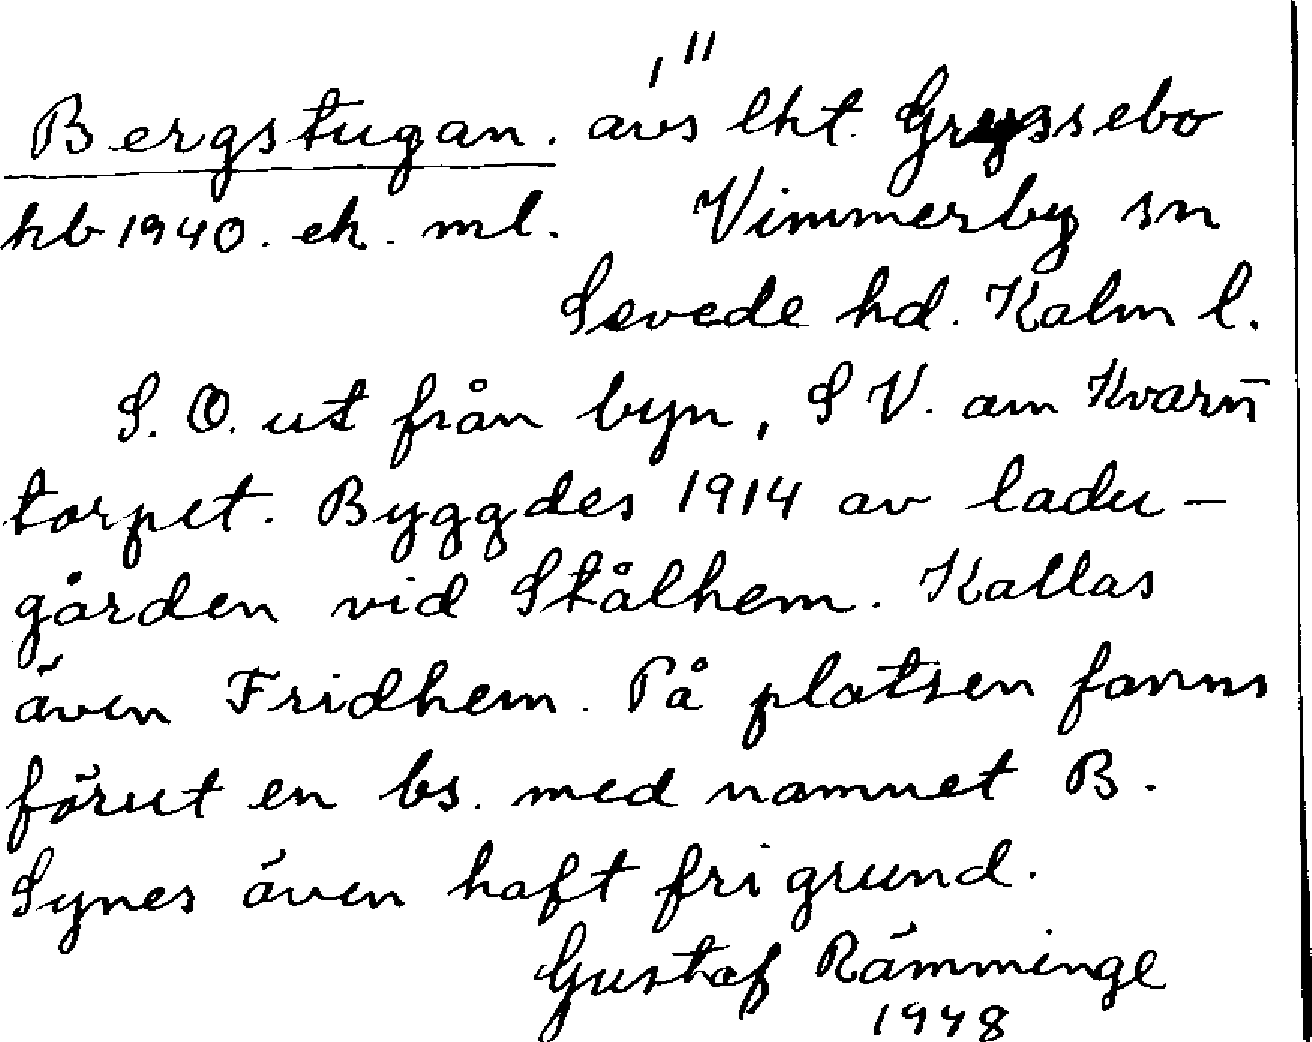 Bergstugan. avs lht. Gryssebo
hb 1940. ek. ml. Vimmerby sn
Sevede hd. Kalm l.
S. O. ut från byn, S V. om Kvarn
torpet. Byggdes 1914 av ladu-
gården vid Stålhem. Kallas
även Fridhem. På platsen fanns
förut en bs. med namnet B.
Synes även haft fri grund.
Gustaf Rämminge
1948